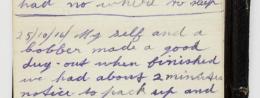 had no where to sleep
25/10/16 My self and a
cobber made a good
dug-out when finished
we had about 2 minutes
notice to pack up and